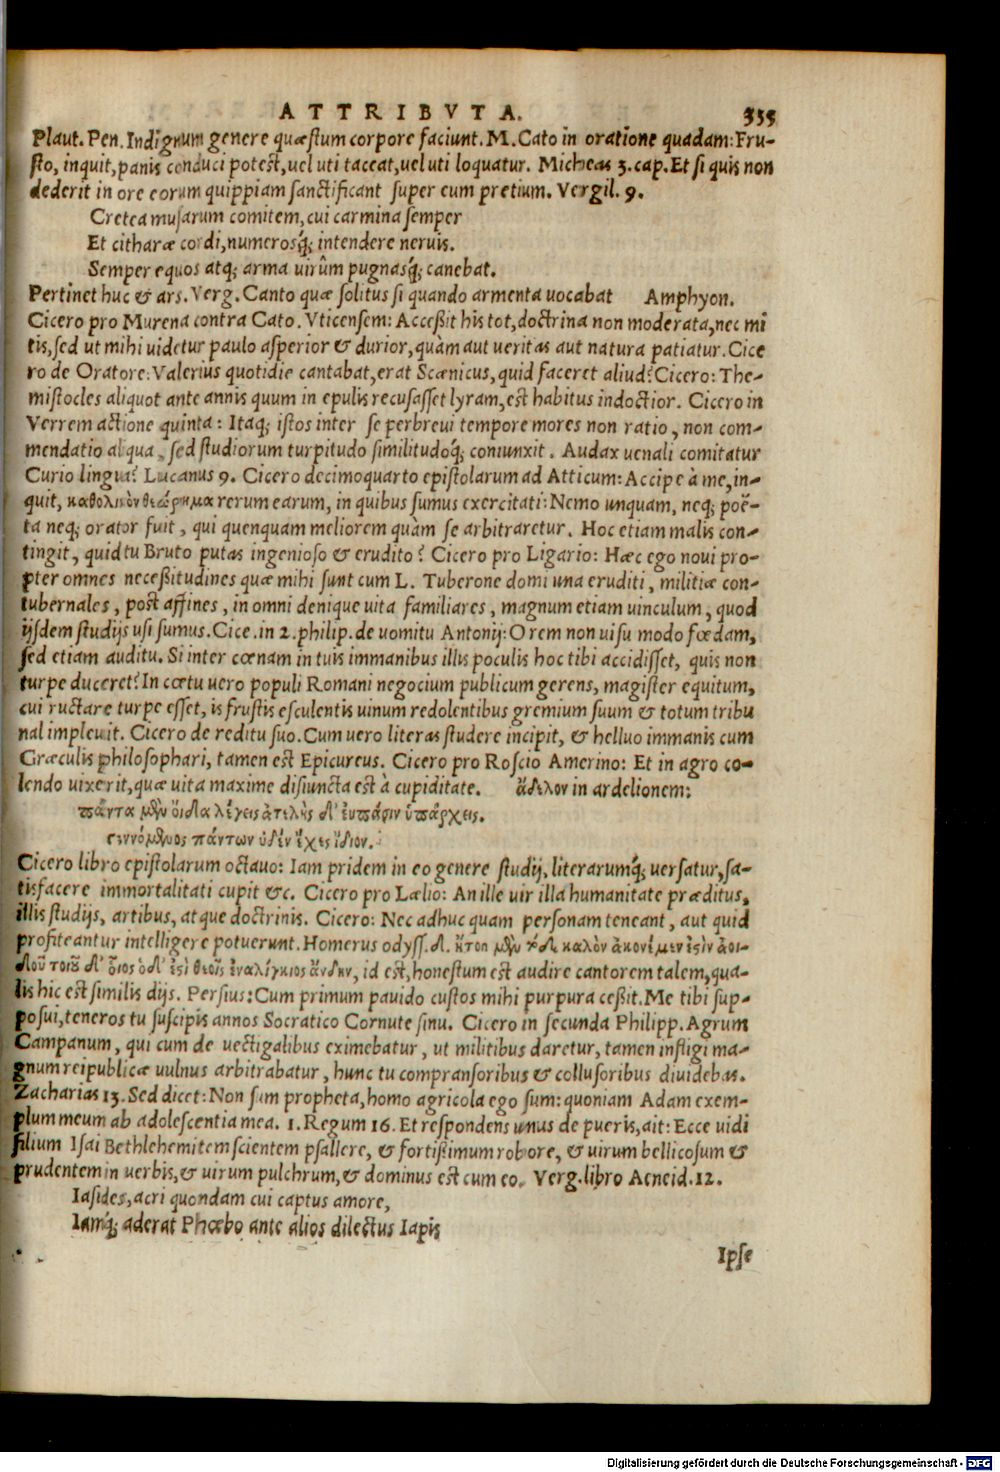 ATTRIBVTA. 335
Plaut. Pen. Indignum genere quæstum corpore faciunt. M. Cato in oratione quadam: Fru-
sto, inquit, panis conduci potest, uel uti taceat, uel uti loquatur. Micheas 3. cap. Et si quis non
dederit in ore eorum quippiam sanctificant super eum pretium. Vergil. 9.
Cretea musarum comitem, cui carmina semper
Et citharæ cordi, numerosq́; intendere neruis.
Semper equos atq; arma uirûm pugnasq́; canebat.
Pertinet huc & ars. Verg. Canto quæ solitus si quando armenta uocabat Amphyon.
Cicero pro Murena contra Cato. Vticensem: Acceßit his tot, doctrina non moderata, nec mi
tis, sed ut mihi uidetur paulo asperior & durior, quàm aut ueritas aut natura patiatur. Cice
ro de Oratore: Valerius quotidie cantabat, erat Scænicus, quid faceret aliud? Cicero: The-
mistocles aliquot ante annis quum in epulis recusasset lyram, est habitus indoctior. Cicero in
Verrem actione quinta: Itaq; istos inter se perbreui tempore mores non ratio, non com-
mendatio aliqua, sed studiorum turpitudo similitudoq́; coniunxit. Audax uenali comitatur
Curio lingua? Lucanus 9. Cicero decimoquarto epistolarum ad Atticum: Accipe à me, in-
quit, καθολικὸν θεώρημα rerum earum, in quibus sumus exercitati: Nemo unquam, neq; poë-
ta neq; orator fuit, qui quenquam meliorem quàm se arbitraretur. Hoc etiam malis con-
tingit, quid tu Bruto putas ingenioso & erudito? Cicero pro Ligario: Hæc ego noui pro-
pter omnes neceßitudines quæ mihi sunt cum L. Tuberone domi una eruditi, militiæ con-
tubernales, post affines, in omni denique uita familiares, magnum etiam uinculum, quod
ijsdem studijs usi sumus. Cice. in 2. philip. de uomitu Antonij: O rem non uisu modo fœdam,
sed etiam auditu. Si inter cœnam in tuis immanibus illis poculis hoc tibi accidisset, quis non
turpe duceret? In cœtu uero populi Romani negocium publicum gerens, magister equitum,
cui ructare turpe esset, is frustis esculentis uinum redolentibus gremium suum & totum tribu
nal impleuit. Cicero de reditu suo. Cum uero literas studere incipit, & helluo immanis cum
Græculis philosophari, tamen est Epicureus. Cicero pro Roscio Amerino: Et in agro co-
lendo uixerit, quæ uita maxime disiuncta est à cupiditate. ἄδηλον in ardelionem:
πάντα μὲν οἶδα λέγεις ἀτελὴς δ' ἐν πᾶσιν ὑπάρχεις.
πάντων οὐδὲν ἔχεις ἴδιον.
Cicero libro epistolarum octauo: Iam pridem in eo genere studij, literarumq́; uersatur, sa-
tisfacere immortalitati cupit &c. Cicero pro Lælio: An ille uir illa humanitate præditus,
illis studijs, artibus, atque doctrinis. Cicero: Nec adhuc quam personam teneant, aut quid
profiteantur intelligere potuerunt. Homerus odyss. α. ἤτοι μὲν τόδε καλὸν ἀκουέμεν ἐστὶν ἀοι-
δοῦ τοιοῦδ' οἷος ὅδ' ἐστὶ θεοῖς ἐναλίγκιος ἄυδην, id est, honestum est audire cantorem talem, qua-
lis hic est similis dijs. Persius: Cum primum pauido custos mihi purpura ceßit. Me tibi sup-
posui, teneros tu suscipis annos Socratico Cornute sinu. Cicero in secunda Philipp. Agrum
Campanum, qui cum de uectigalibus eximebatur, ut militibus daretur, tamen infligi ma-
gnum reipublicæ uulnus arbitrabatur, hunc tu compransoribus & collusoribus diuidebas.
Zacharias 13. Sed dicet: Non sum propheta, homo agricola ego sum: quoniam Adam exem-
plum meum ab adolescentia mea. 1. Regum 16. Et respondens unus de pueris, ait: Ecce uidi
filium Isai Bethlehemitem scientem psallere, & fortißimum robore, & uirum bellicosum &
prudentem in uerbis, & uirum pulchrum, & dominus est cum eo. Verg. libro Aeneid. 12.
Iasides, acri quondam cui captus amore,
Iamq́; aderat Phœbo ante alios dilectus Iapis
Ipse
Digitalisierung gefördert durch die Deutsche Forschungsgemeinschaft - DFG